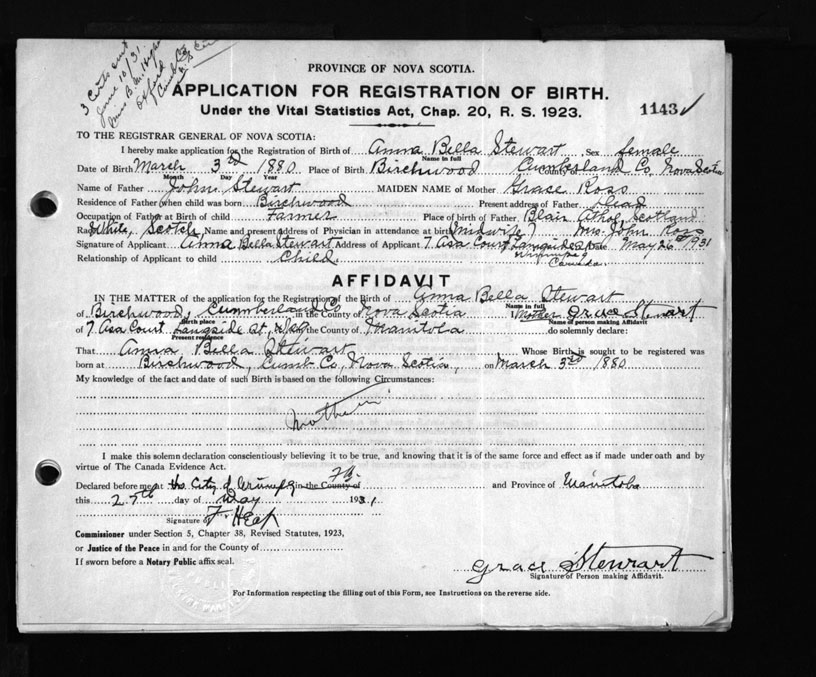 3 Certs sent
June 10/31
Oxford
Cumb Co
N.S.
PROVINCE OF NOVA SCOTIA.
APPLICATION FOR REGISTRATION OF BIRTH.
Under the Vital Statistics Act, Chap. 20, R. S. 1923.
1143 ✓
TO THE REGISTRAR GENERAL OF NOVA SCOTIA:
I hereby make application for the Registration of Birth of Anna Bella Stewart, Sex female
Name in full
Date of Birth March 3rd 1880 Place of Birth Birchwood Cumberland Co, Nova Scotia
Month Day Year
Name of Father John Stewart MAIDEN NAME of Mother Grace Ross
Residence of Father (when child was born Birchwood Present address of Father Dead
Occupation of Father at Birth of child Farmer Place of birth of Father Blair Athol, Scotland
Race White, Scotch Name and present address of Physician in attendance at birth (Midwife?) Mrs. John Ross
Signature of Applicant Anna Bella Stewart Address of Applicant 7 Asa Court Langside St Date May 26th 1931
Winnipeg
Relationship of Applicant to child Child. Canada.
AFFIDAVIT
IN THE MATTER of the application for the Registration of Birth of Anna Bella Stewart
Name in full
of Birchwood, Cumberland Co, in the County of Nova Scotia I, Mother Grace Stewart
Birth place Name of person making Affidavit
of 7 Asa Court Langside St, Wpg in the County of Manitoba do solemnly declare:
Present residence
That Anna Bella Stewart Whose Birth is sought to be registered was
born at Birchwood, Cumb Co, Nova Scotia, on March 3rd 1880
My knowledge of the fact and date of such Birth is based on the following Circumstances:
Mother
I make this solemn declaration conscientiously believing it to be true, and knowing that it is of the same force and effect as if made under oath and by
virtue of The Canada Evidence Act.
Declared before me at the City of Winnipeg in the County of and Province of Manitoba
this 27th day of May 1931
Signature of F. Heap
Commissioner under Section 5, Chapter 38, Revised Statutes, 1923,
or Justice of the Peace in and for the County of
If sworn before a Notary Public affix seal.
Grace Stewart
Signature of Person making Affidavit.
For Information respecting the filling out of this Form, see Instructions on the reverse side.